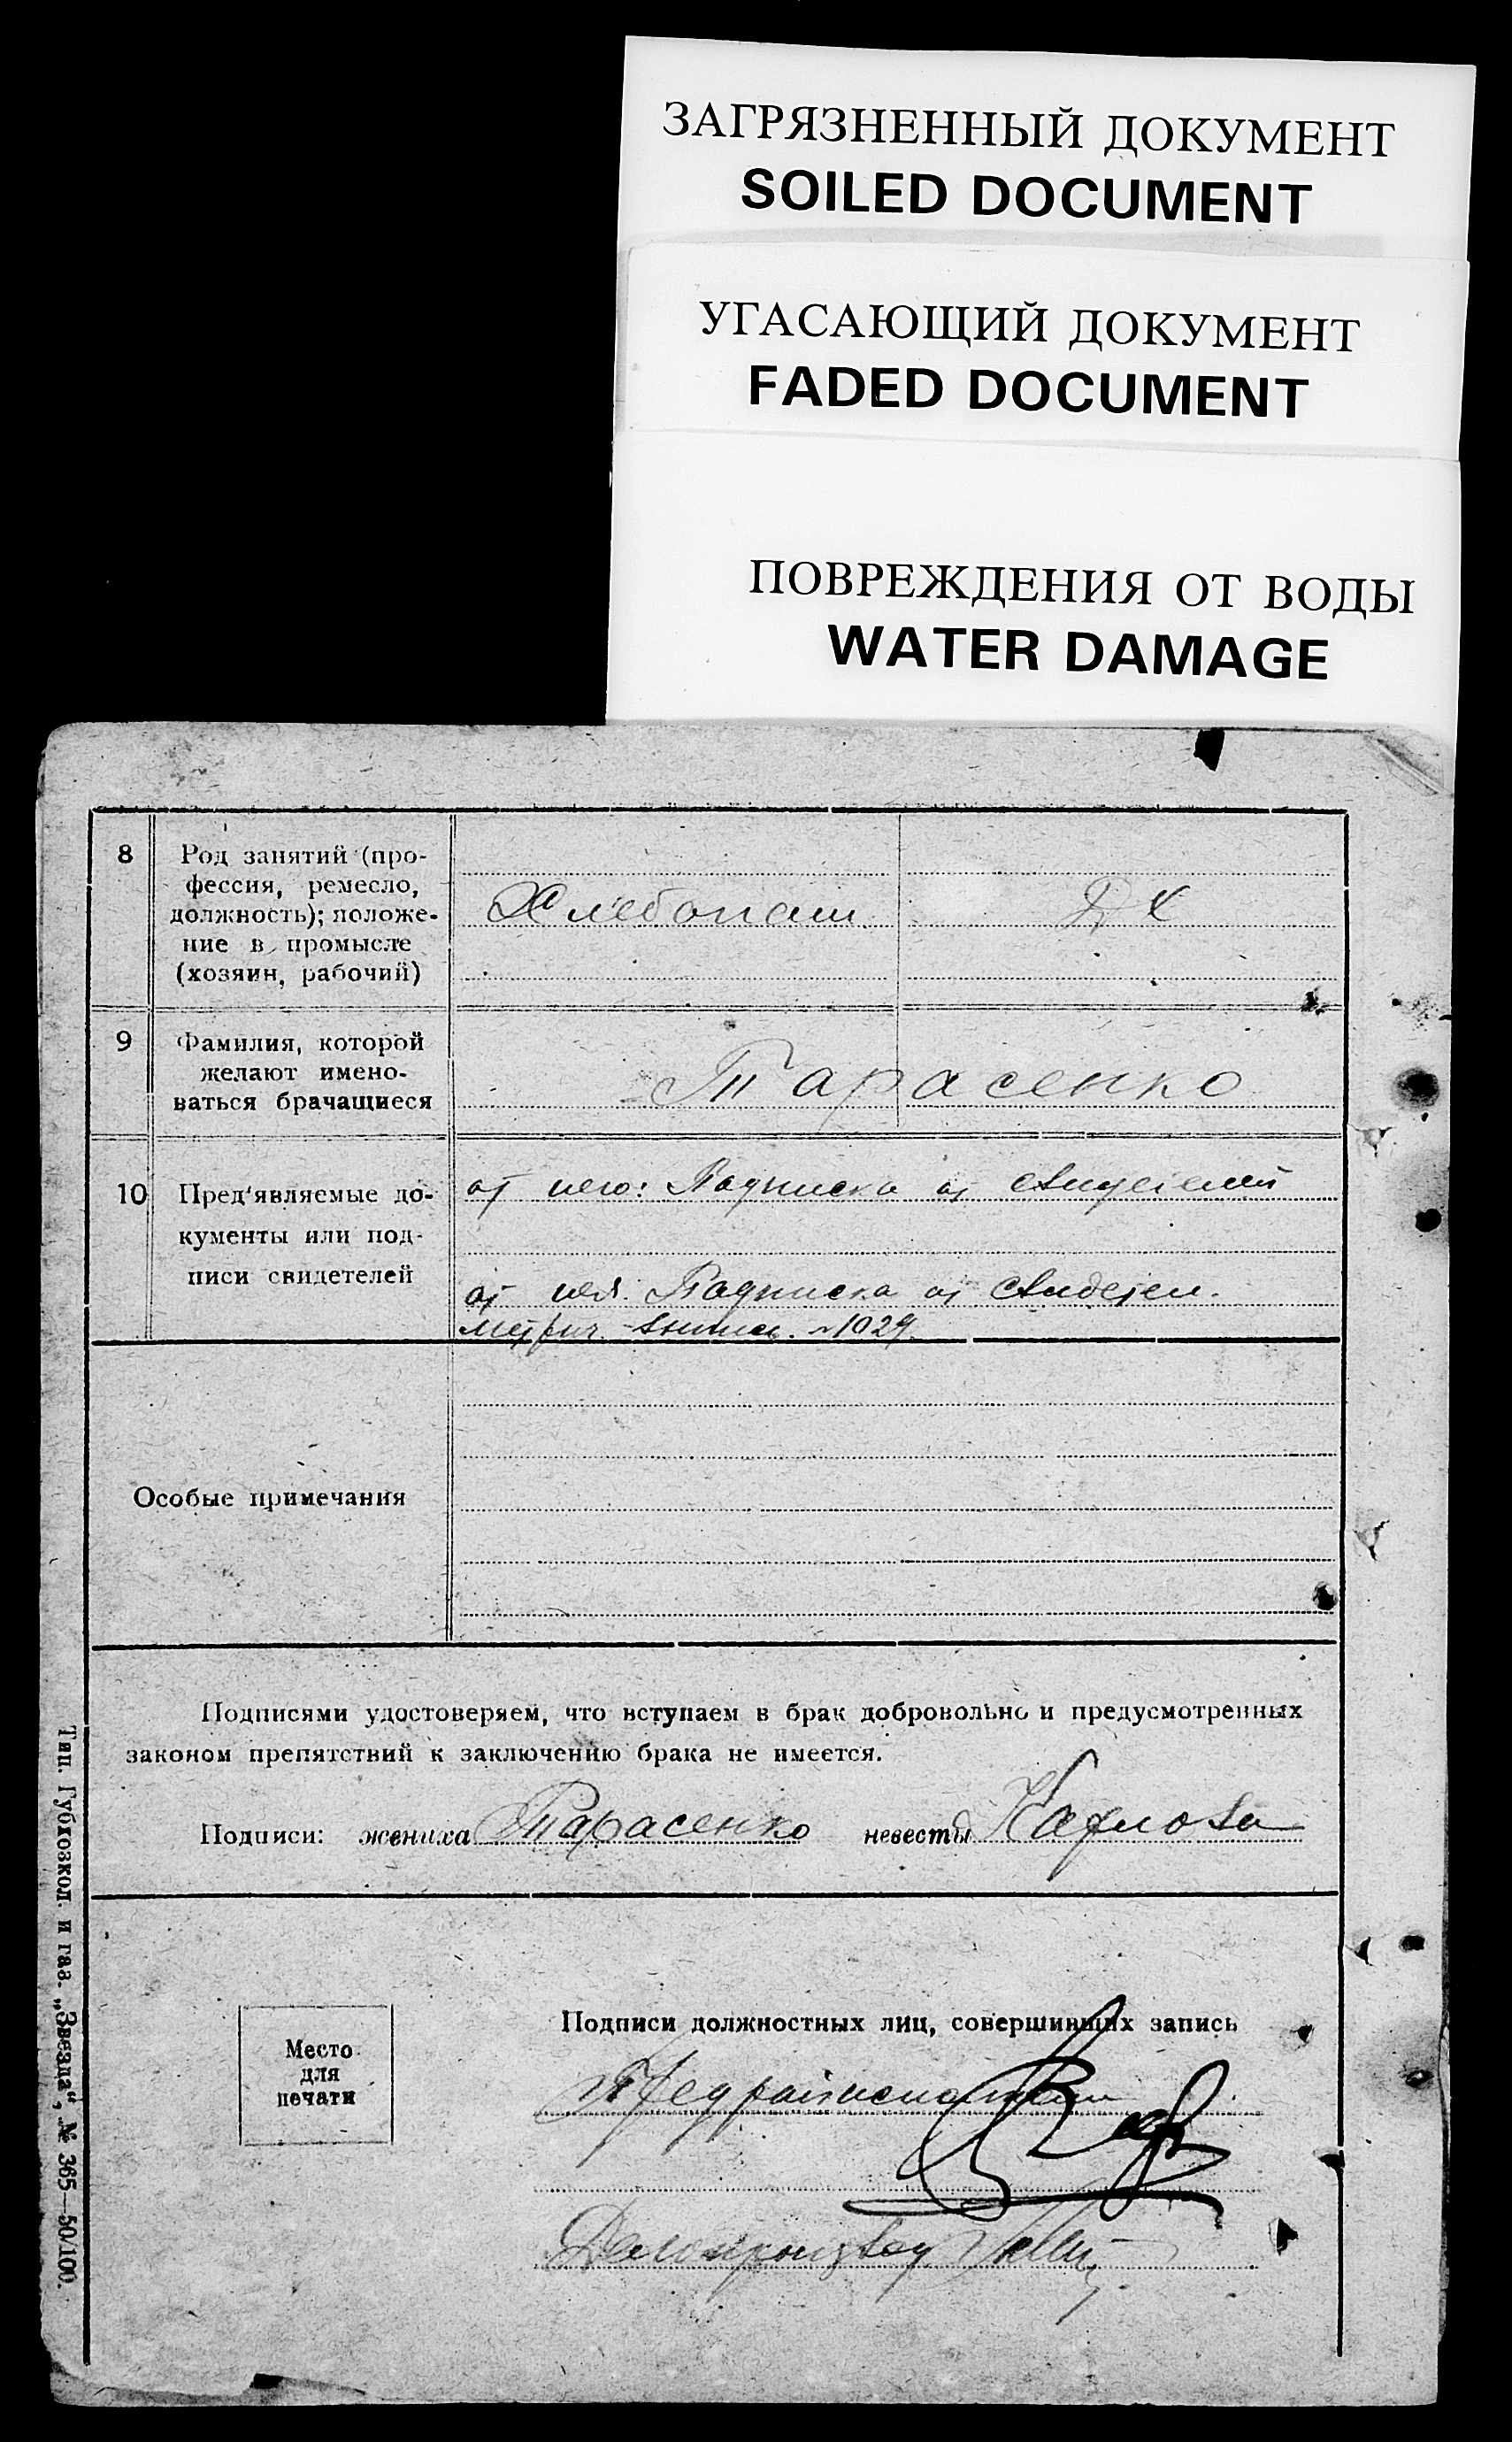 ЗАГРЯЗНЕННЫЙ ДОКУМЕНТ
SOILED DOCUMENT
УГАСАЮЩИЙ ДОКУМЕНТ
FADED DOCUMENT
ПОВРЕЖДЕНИЯ ОТ ВОДЫ
WATER DAMAGE
8
Род занятий (про-
фессия, ремесло,
должность); положе-
ние в промысле
(хозяин, рабочий)
Хлебопаш.
Д Х
9
Фамилия, которой
желают имено-
ваться брачащиеся
Тарасенко
10
Пред'являемые до-
кументы или под-
писи свидетелей
от него: Подписка от
от нея. Подписка от
Метрич. выпись. № 1029.
Особые примечания
Подписями удостоверяем, что вступаем в брак добровольно и предусмотренных
законом препятствий к заключению брака не имеется.
Подписи: жениха Тарасенко невесты
Место
для
печати
Подписи должностных лиц, совершивших запись
Делопроизвод
Тип. Губтозкол. и газ. „Звезда“, № 365—50/100.